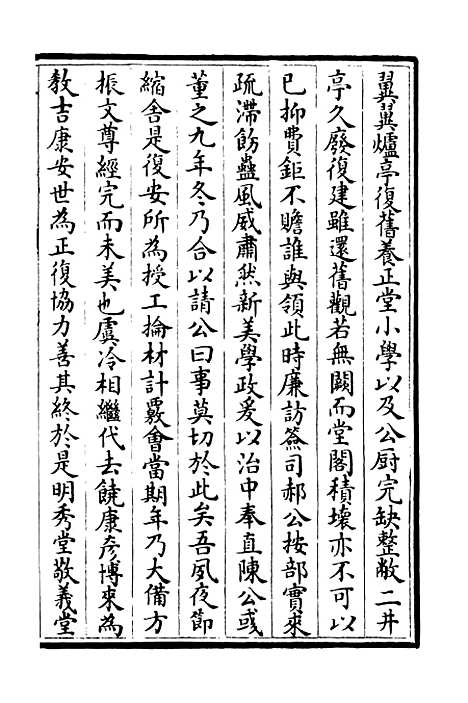 翼翼爐亭復舊養正堂小學以及公厨完缺整敝二井
亭久廢復建雖還舊觀若無闕而堂閣積壊亦不可以
已抑費鉅不贍誰與領此時廉訪簽司郝公按部實來
疏滯飭蠱風威肅然新美學政爰以治中奉直陳公彧
董之九年冬乃合以請公曰事莫切於此矣吾夙夜節
縮舍是復安所為授工掄材計覈會當期年乃大備方
振文尊經完而未美也虞冷相繼代去饒康彦博來為
教吉康安世為正復協力善其終於是明秀堂敬義堂